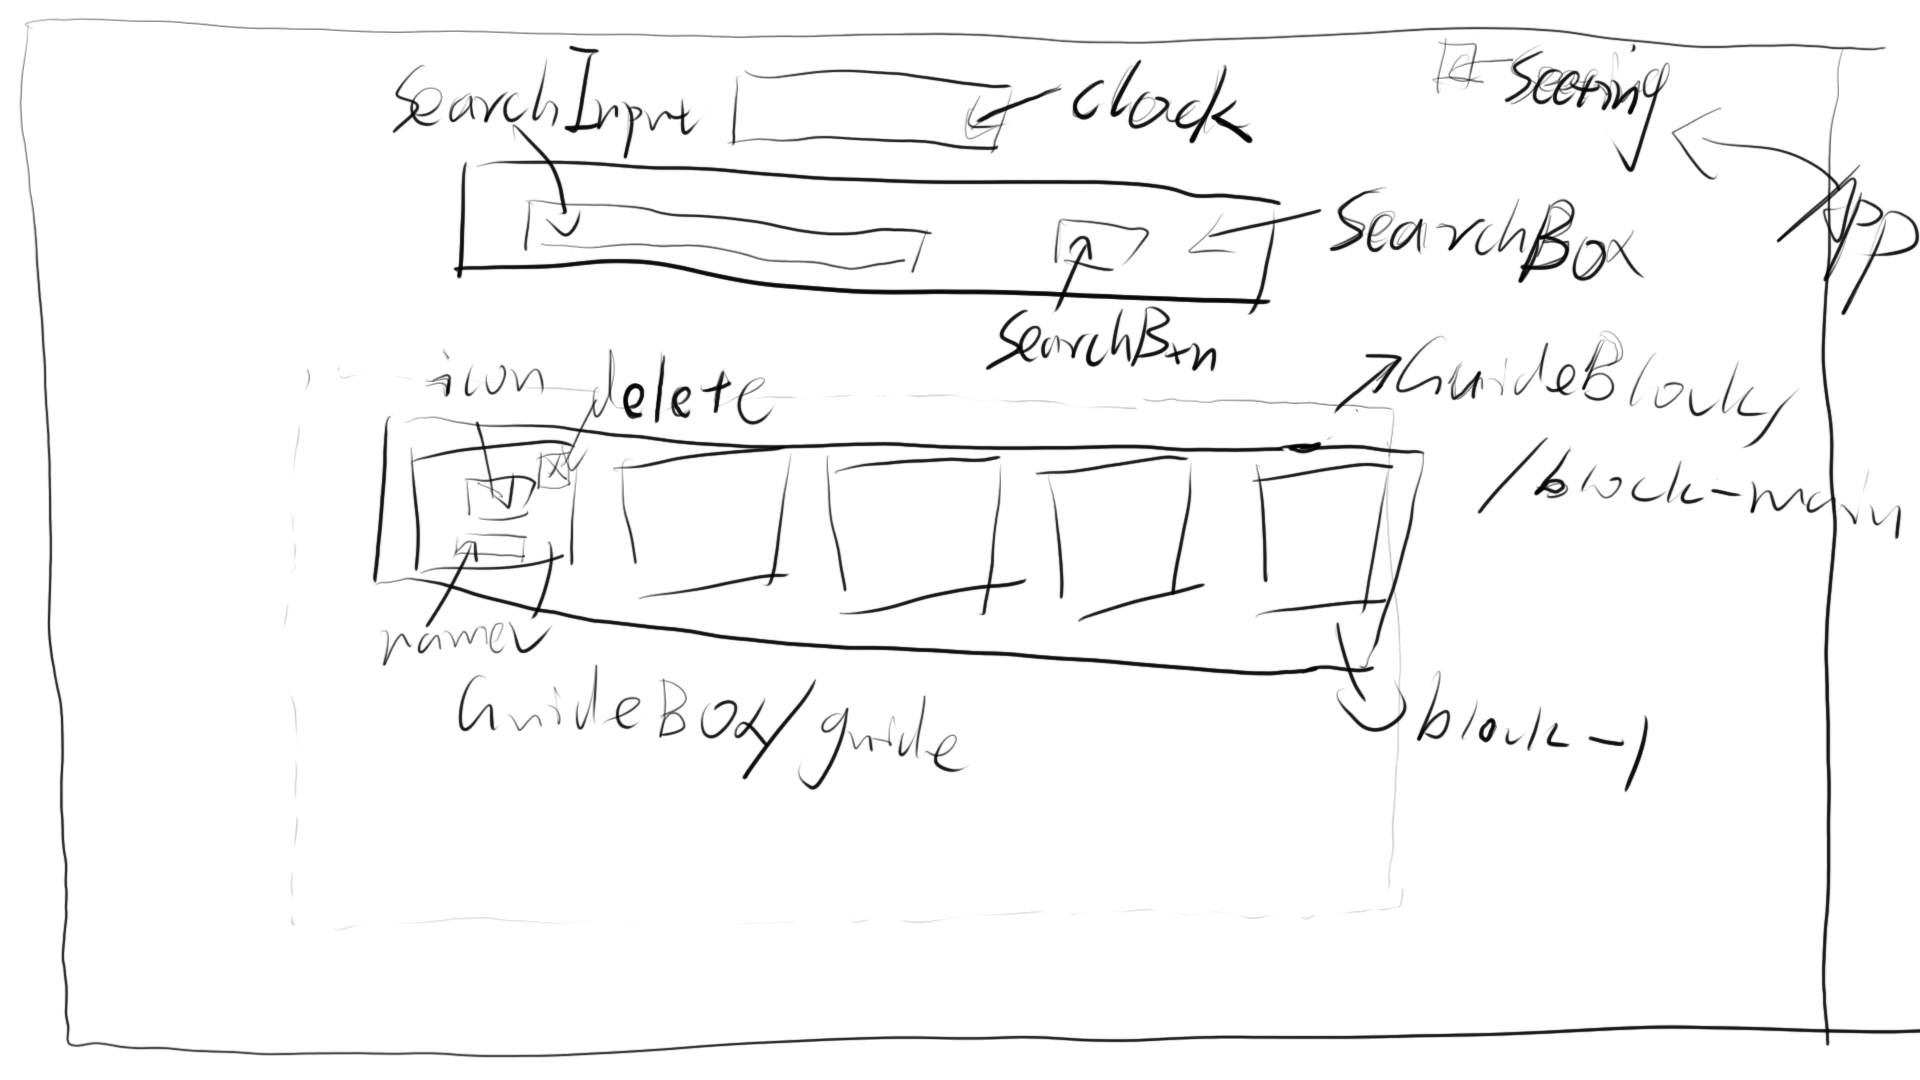 SearchInput
clock
Seeting
App
SearchBox
SearchBtn
icon
delete
GuideBlock/
/block-main
name
GuideBOX/guide
block-1